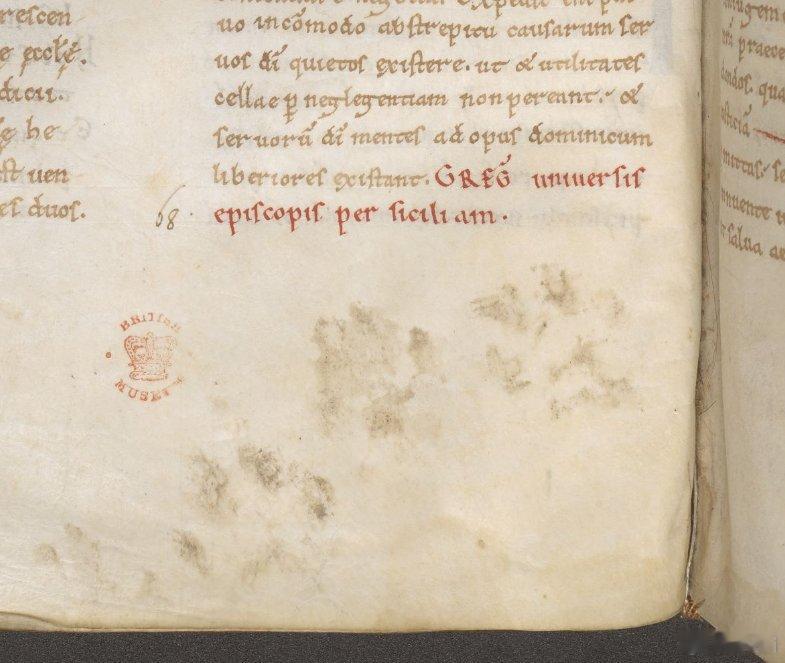 rescen
e eccłę.
dicii.
ę be
st uen
es duos.
uo incōmodo abstrepitu causarum ser
uos dī quietos existere. ut & utilitates
cellae p̄ neglegentiam non pereant. &
seruorū dī mentes ad opus dominicum
liberiores existant. GREḠ uniuersis
68. episcopis per siciliam.
BRITISH
MUSEUM
iugem
praece
dendos. qua
mittas. se
nuente
salua